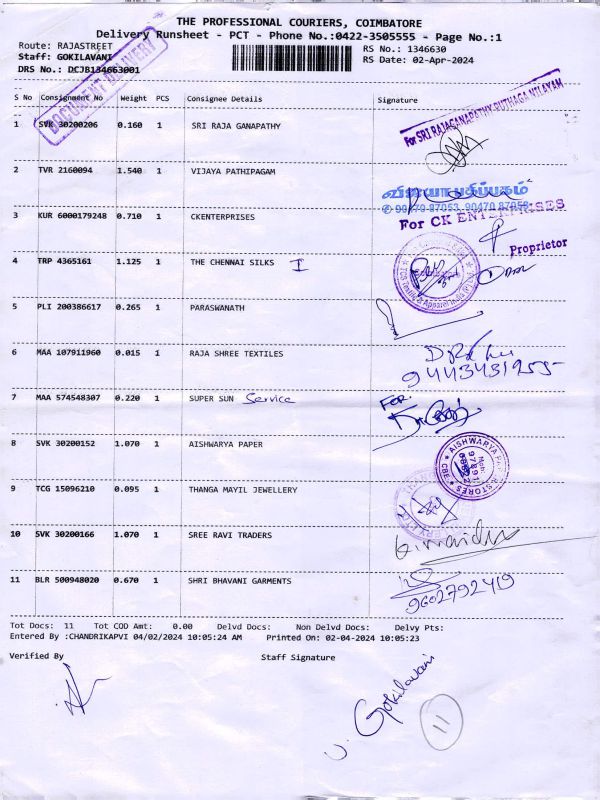 THE PROFESSIONAL COURIERS, COIMBATORE
Delivery Runsheet - PCT - Phone No.:0422-3505555 - Page No.:1
Route: RAJASTREET
RS No.: 1346630
Staff: GOKILAVANI
RS Date: 02-Apr-2024
DRS No.: DCJB134663001
DOCUMENT DELIVERY
S No Consignment No Weight PCS Consignee Details Signature
1 SVK 30200206 0.160 1 SRI RAJA GANAPATHY
For SRI RAJAGANAPATHY PUTHAGA NILAYAM
2 TVR 2160094 1.540 1 VIJAYA PATHIPAGAM
விஜயா பதிப்பகம்
✆ 90470 87053, 90470 87058
3 KUR 6000179248 0.710 1 CKENTERPRISES
For CK ENTERPRISES
Proprietor
4 TRP 4365161 1.125 1 THE CHENNAI SILKS I
5 PLI 200386617 0.265 1 PARASWANATH
6 MAA 107911960 0.015 1 RAJA SHREE TEXTILES
9443431955
7 MAA 574548307 0.220 1 SUPER SUN Service
FOR
8 SVK 30200152 1.070 1 AISHWARYA PAPER
AISHWARYA PAPER STORES
CBE
9 TCG 15096210 0.095 1 THANGA MAYIL JEWELLERY
10 SVK 30200166 1.070 1 SREE RAVI TRADERS
11 BLR 500948020 0.670 1 SHRI BHAVANI GARMENTS
9602792419
Tot Docs: 11 Tot COD Amt: 0.00 Delvd Docs: Non Delvd Docs: Delvy Pts:
Entered By :CHANDRIKAPVI 04/02/2024 10:05:24 AM Printed On: 02-04-2024 10:05:23
Verified By Staff Signature
U. Gokilavani
11